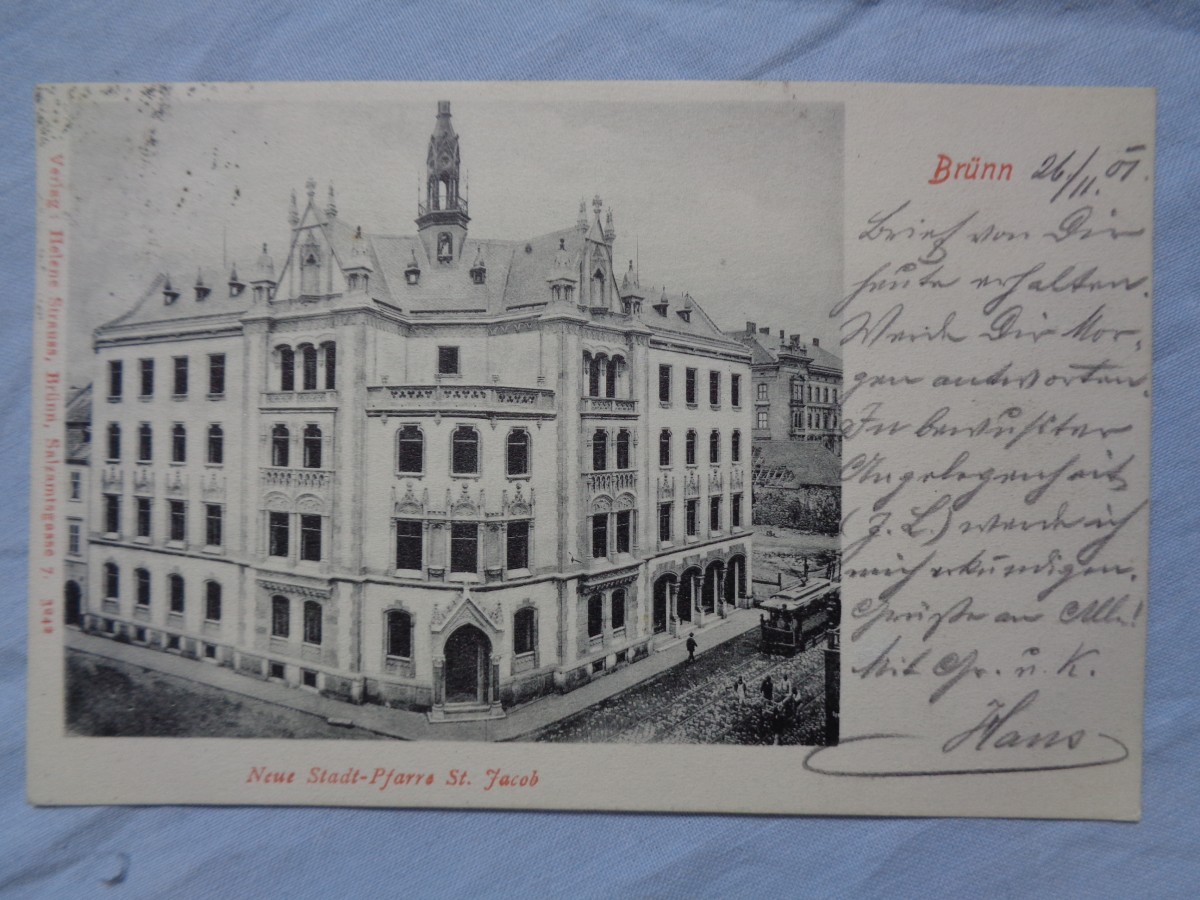 Brünn 26./11. 01.
Brief von Dir
heute erhalten.
Werde Dir Mor-
gen antworten.
In bewußter
Angelegenheit
(J. L.) werde ich
mich erkundigen.
Grüße an Alle!
Mit Gr. u. K.
Hans
Neue Stadt-Pfarre St. Jacob
Verlag: Helene Strauss, Brünn, Salzamtsgasse 7. 3942